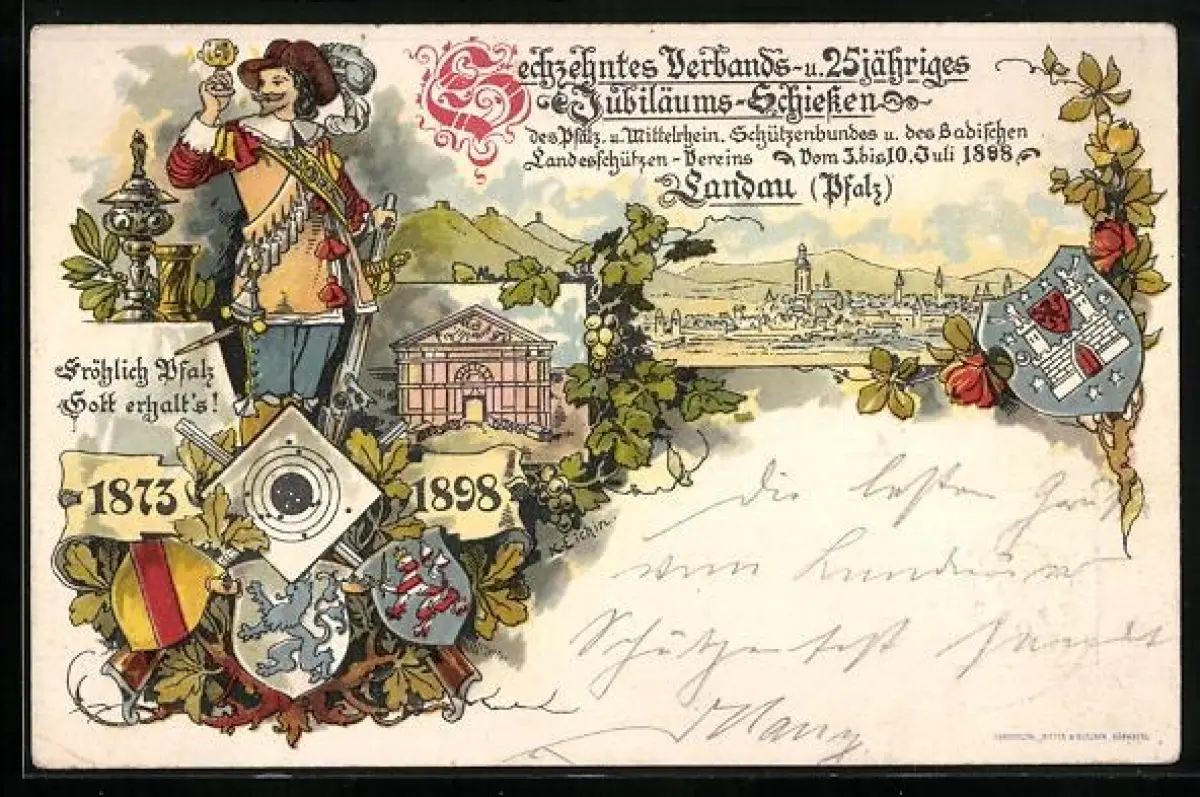 Sechzehntes Verbands- u. 25jähriges
Jubiläums-Schießen
des Pfälz. u. Mittelrhein. Schützenbundes u. des Badischen
Landesschützen-Vereins Vom 3. bis 10. Juli 1898
Landau (Pfalz)
Fröhlich Pfalz
Gott erhalt's!
1873
1898
Die besten Grüße
vom Landauer
Schützenfest sendet